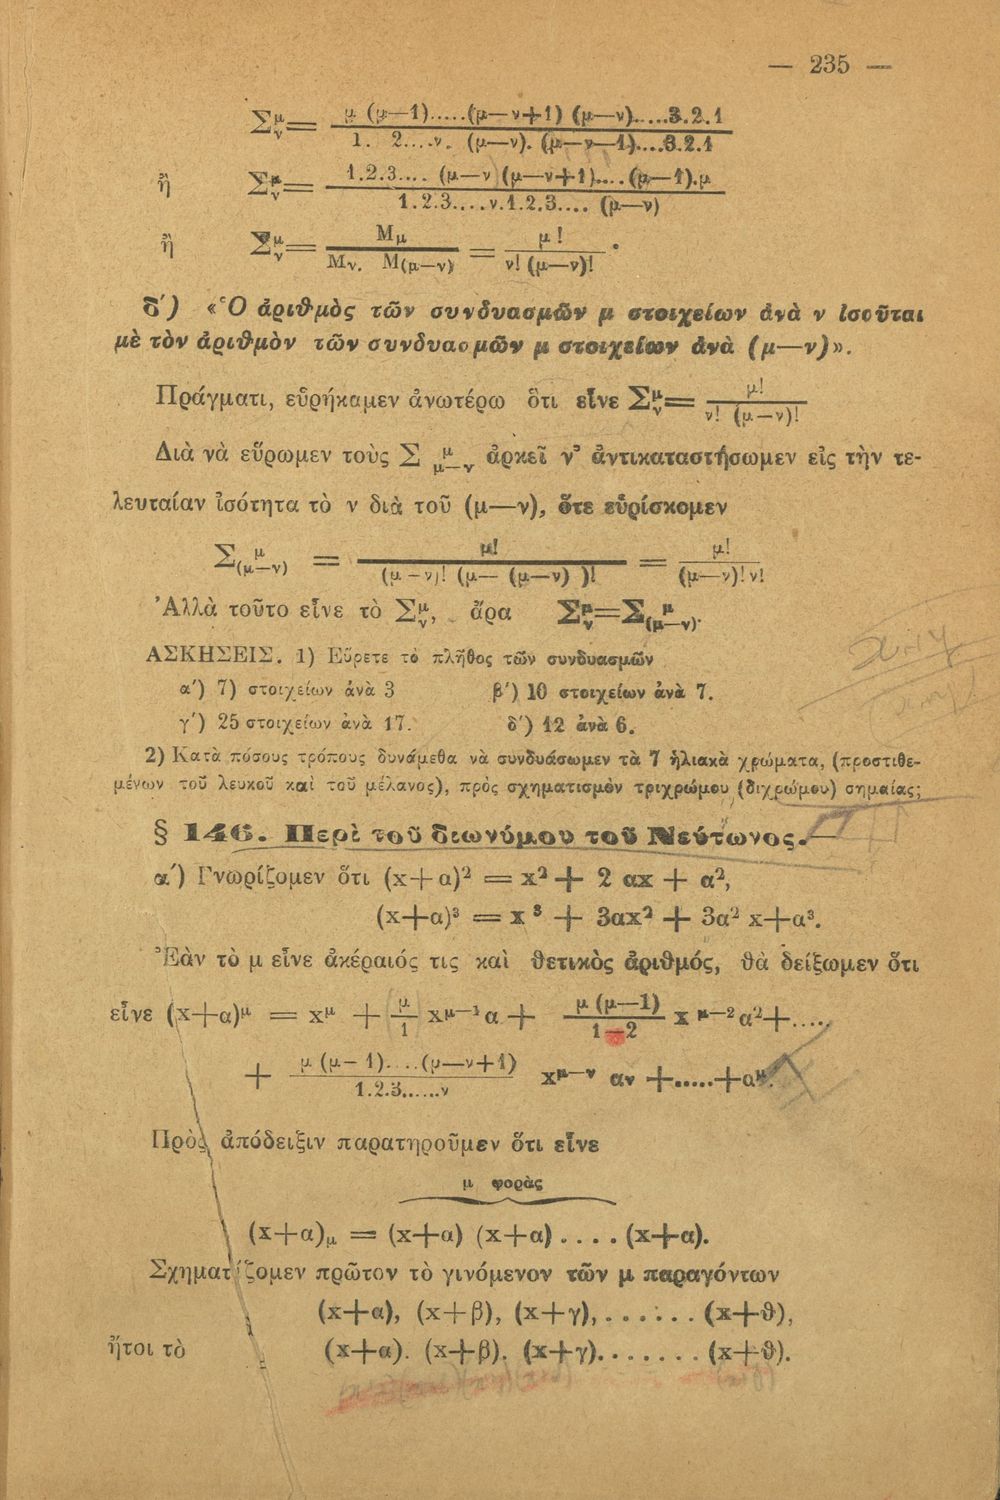 — 235 —
Σμν = μ (μ—1).....(μ—ν+1) (μ—ν)......3.2.1 / 1. 2....ν. (μ—ν). (μ—ν—1)....3.2.1
ἢ Σμν = 1.2.3.... (μ—ν) (μ—ν+1).... (μ—1).μ / 1.2.3....ν.1.2.3.... (μ—ν)
ἢ Σμν = Μμ / Μν. Μ(μ—ν) = μ! / ν! (μ—ν)! .
δ΄) «Ὁ ἀριθμὸς τῶν συνδυασμῶν μ στοιχείων ἀνὰ ν ἰσοῦται
μὲ τὸν ἀριθμὸν τῶν συνδυασμῶν μ στοιχείων ἀνὰ (μ—ν)».
Πράγματι, εὕρήκαμεν ἀνωτέρω ὅτι εἶνε Σμν = μ! / ν! (μ—ν)!
Διὰ νὰ εὕρωμεν τοὺς Σ μ μ—ν ἀρκεῖ ν᾽ ἀντικαταστήσωμεν εἰς τὴν τε-
λευταίαν ἰσότητα τὸ ν διὰ τοῦ (μ—ν), ὅτε εὑρίσκομεν
Σ μ (μ—ν) = μ! / (μ—ν)! (μ— (μ—ν) )! = μ! / (μ—ν)! ν!
Ἀλλὰ τοῦτο εἶνε τὸ Σμν, ἄρα Σμν=Σ μ (μ—ν).
ΑΣΚΗΣΕΙΣ. 1) Εὕρετε τὸ πλῆθος τῶν συνδυασμῶν
α΄) 7) στοιχείων ἀνὰ 3 β΄) 10 στοιχείων ἀνὰ 7.
γ΄) 25 στοιχείων ἀνὰ 17. δ΄) 12 ἀνὰ 6.
2) Κατὰ πόσους τρόπους δυνάμεθα νὰ συνδυάσωμεν τὰ 7 ἡλιακὰ χρώματα, (προστιθε-
μένων τοῦ λευκοῦ καὶ τοῦ μέλανος), πρὸς σχηματισμὸν τριχρώμου (διχρώμου) σημαίας;
§ 146. Περὶ τοῦ διωνύμου τοῦ Νεύτωνος.—
α΄) Γνωρίζομεν ὅτι (x+α)² = x² + 2 αx + α²,
(x+α)³ = x³ + 3αx² + 3α² x+α³.
Ἐὰν τὸ μ εἶνε ἀκέραιός τις καὶ θετικὸς ἀριθμός, θὰ δείξωμεν ὅτι
εἶνε (x+α)^μ = x^μ + μ/1 x^μ—1 α + μ (μ—1) / 1—2 x^μ—2 α²+.....
+ μ (μ—1)....(μ—ν+1) / 1.2.3......ν x^μ—ν αν +.....+α^μ.
Πρὸς ἀπόδειξιν παρατηροῦμεν ὅτι εἶνε
μ φορὰς
(x+α)μ = (x+α) (x+α) . . . . (x+α).
Σχηματίζομεν πρῶτον τὸ γινόμενον τῶν μ παραγόντων
(x+α), (x+β), (x+γ), . . . . . . (x+θ),
ἤτοι τὸ (x+α). (x+β). (x+γ). . . . . . . (x+θ).